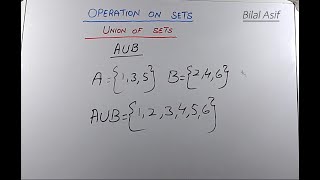 OPERATION ON SETS
Bilal Asif
UNION OF SETS
AUB
A={1,3,5} B={2,4,6}
AUB={1,2,3,4,5,6}